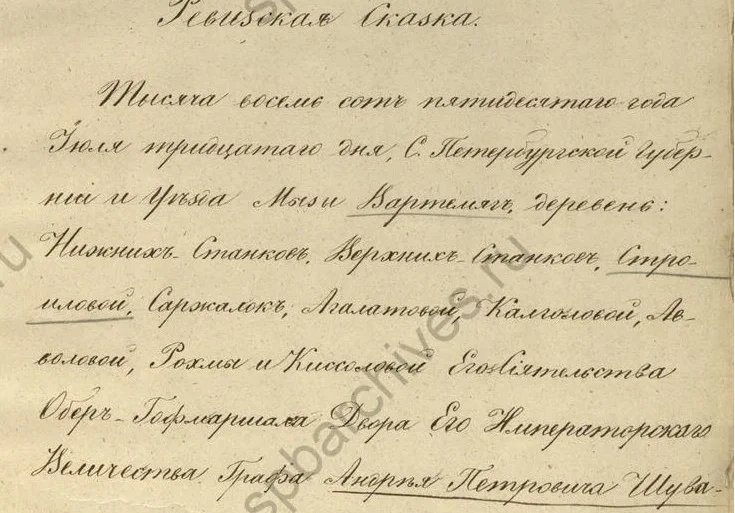 Ревизская Сказка.
Тысяча восемь сотъ пятидесятаго года
Іюля тридцатаго дня, С. Петербургской Губер-
ніи и Уѣзда Мызы Вартемягъ, деревень:
Нижнихъ-Станковъ, Верхнихъ-Станковъ, Стро-
иловой, Саржалокъ, Агалатовой, Калголовой, Ав-
воловой, Рохмы и Киссоловой Его Сіятельства
Оберъ-Гофмаршала Двора Его Императорскаго
Величества Графа Андрѣя Петровича Шува-
spbarchives.ru